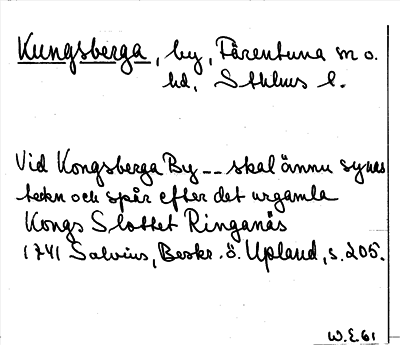 Kungsberga, by, Färentuna sn o.
hd, Sthlms l.
Vid Kongsberga By -- skal ännu synas
tekn och spår efter det urgamla
Kongs Slottet Ringanäs
1741 Salvius, Beskr. ö. Upland, s. 205.
W.E. 61